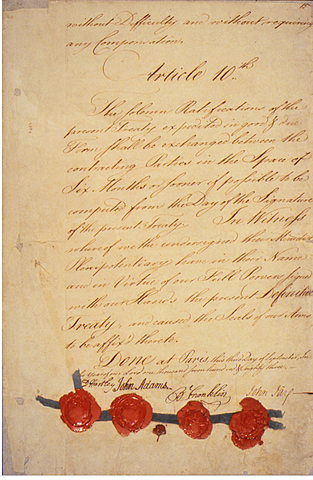 without Difficulty and without requiring
any Compensation.
Article 10th.
The solemn Ratifications of the
present Treaty expedited in good & due
Form shall be exchanged between the
contracting Parties in the Space of
Six Months or sooner if possible to be
computed from the Day of the Signature
of the present Treaty. In Witness
whereof we the undersigned their Ministers
Plenipotentiary have in their Name
and in Virtue of our Full Powers signed
with our Hands the present Definitive
Treaty, and caused the Seals of our Arms
to be affix'd thereto.
Done at Paris, this third day of September, In the
Year of our Lord one thousand seven hundred & eighty three.
D Hartley John Adams B Franklin John Jay